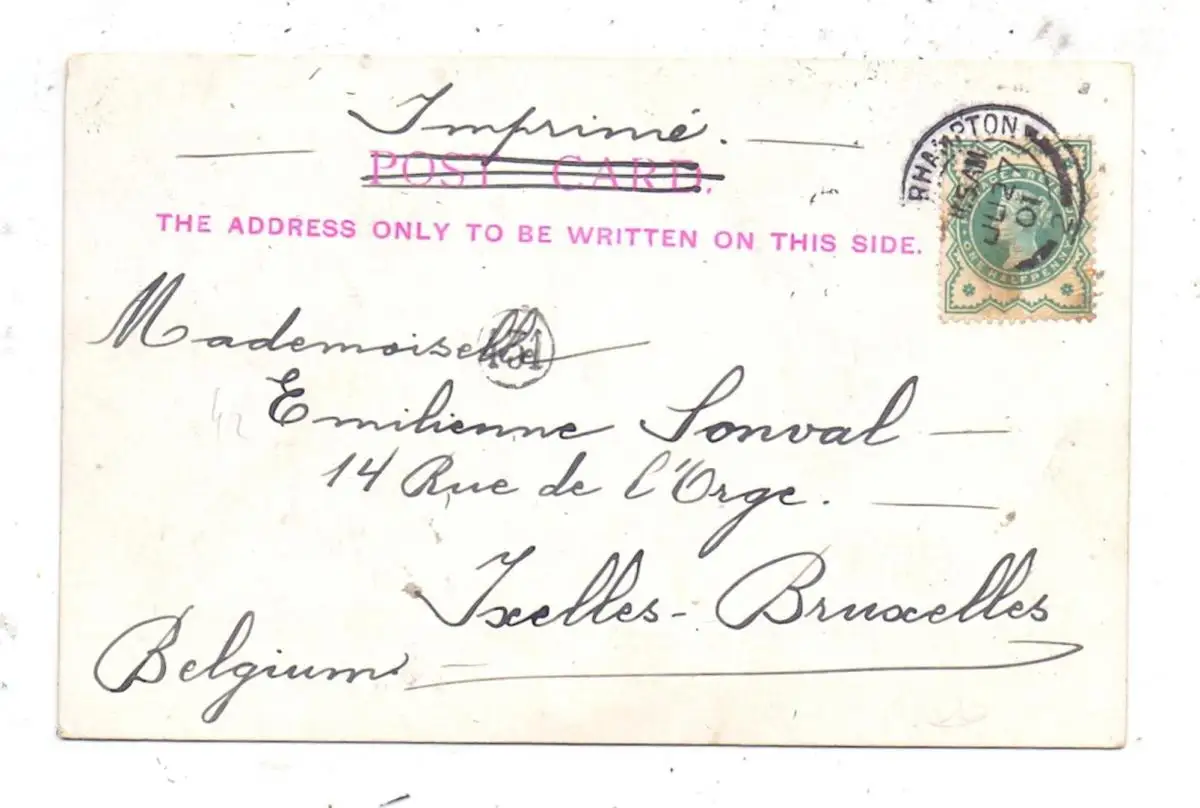 Imprimé.
POST CARD.
THE ADDRESS ONLY TO BE WRITTEN ON THIS SIDE.
RHAMPTON
11.15 AM
JU 27
01
POSTAGE & REVENUE
ONE HALFPENNY
Mademoiselle
Emilienne Sonval
14 Rue de l'Orge.
Ixelles - Bruxelles
Belgium